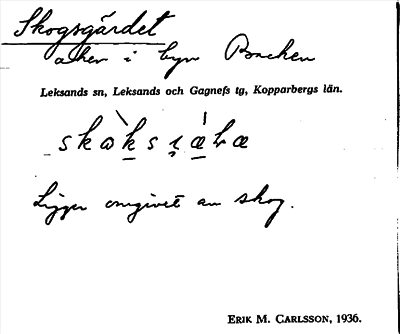 Skogsgärdet
åker i byn Backen
Leksands sn, Leksands och Gagnefs tg, Kopparbergs län.
Ligger omgivet av skog.
ERIK M. CARLSSON, 1936.